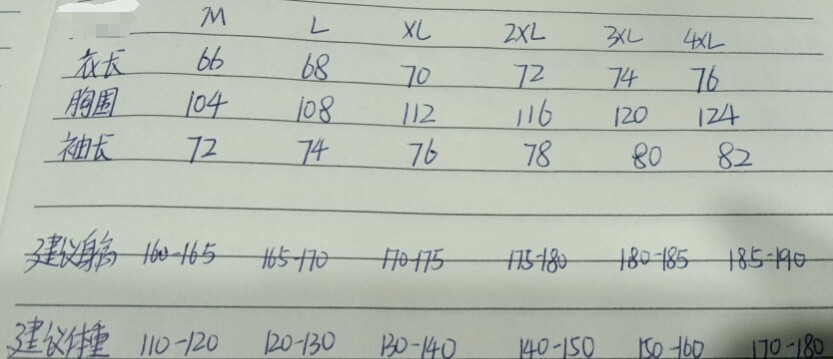 M L XL 2XL 3XL 4XL
衣长 66 68 70 72 74 76
胸围 104 108 112 116 120 124
袖长 72 74 76 78 80 82
建议身高 160-165 165-170 170-175 175-180 180-185 185-190
建议体重 110-120 120-130 130-140 140-150 150-160 170-180